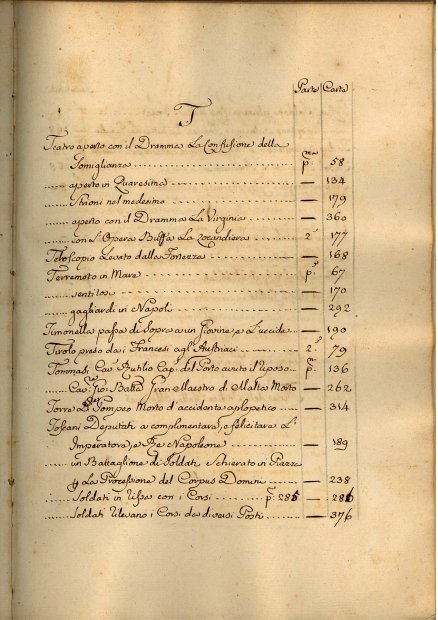 Parte Carta
T
Teatro aperto con il Dramma La Confusione della
Somiglianza p.ma 58
aperto in Quaresima — 134
Strioni nel medesimo — 179
aperto con il Dramma La Virginia — 360
con L'Opera Buffa La Locandiera 2.a 177
Teloscopio Levato dalla Fortezza — 168
Terremoto in Mare p.a 67
sentitosi — 170
gagliardi in Napoli — 292
Timonella passa di sopra a un Giovine, e L'uccide — 190
Tirolo preso dai Francesi agl'Austriaci 2.a 79
Tommasi Cav. Rutilio Cap. del Porto avuto il riposo p.a 136
Cav. Gio: Batta Gran Maestro di Malta Morto — 262
Torre Del Pompeo Morto d'accidenta aplopetico — 314
Toscani Deputati a complimentara, e felicitara L'
Imperatora, e Re Napoleone — 189
in Battaglione di Soldati, Schierato in Piazza
p La Processione del Corpus Domini — 238
Soldati in Rissa con i Corsi p.a 285 — 286
Soldati rilevano i Corsi da diversi Posti — 376